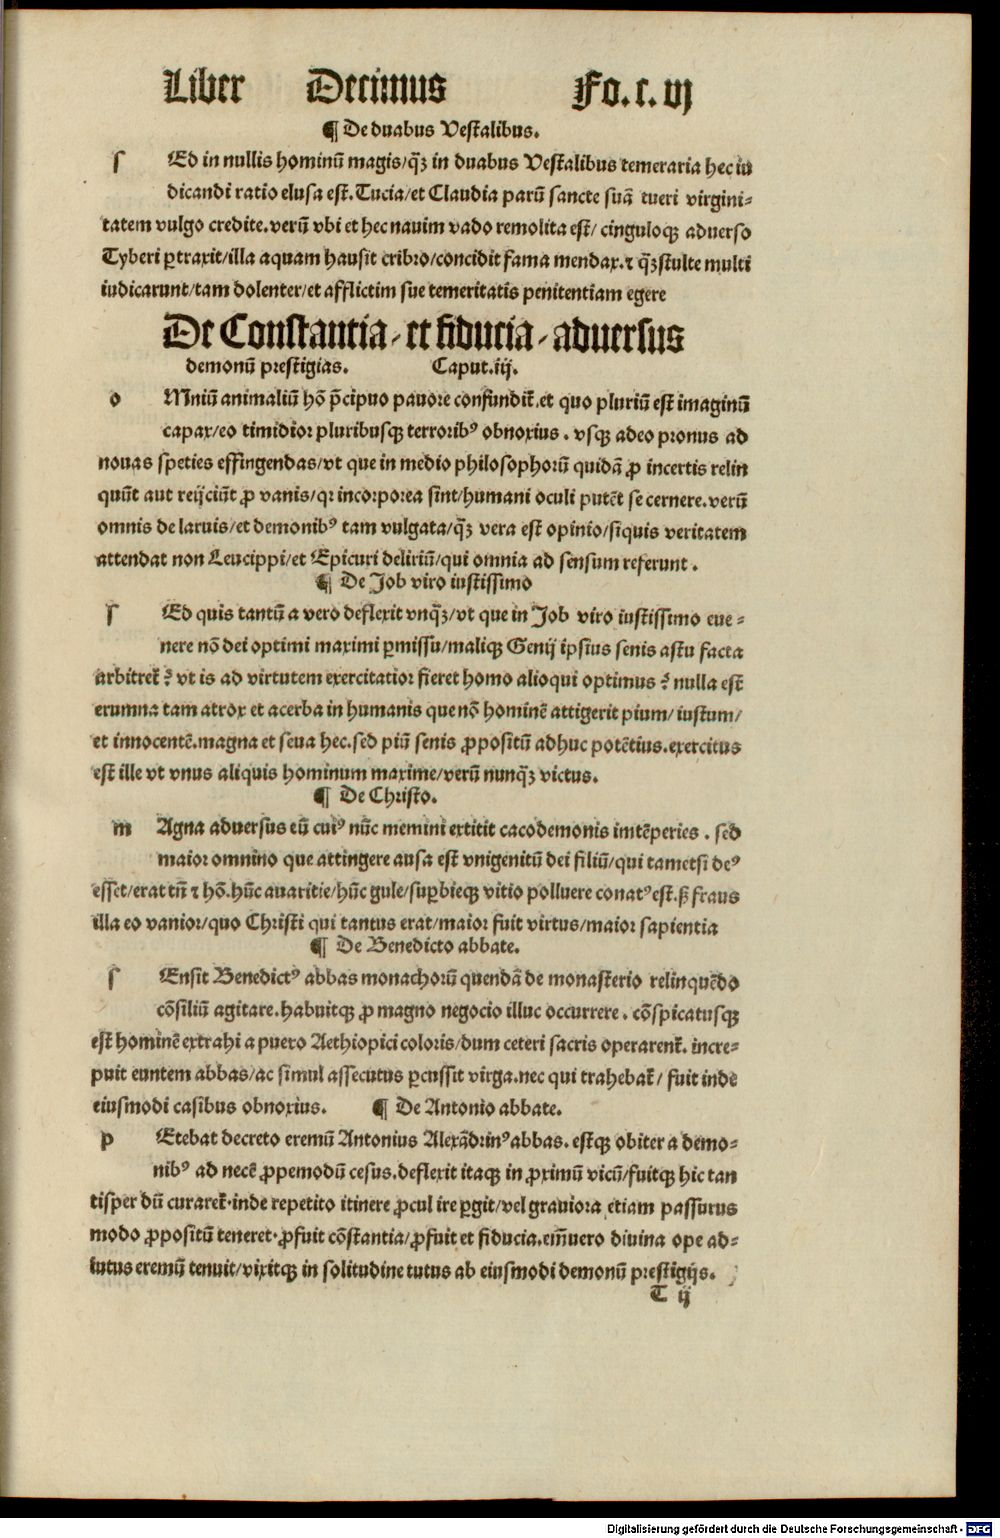 Liber Decimus Fo. c. vj
¶ De duabus Vestalibus.
s Ed in nullis hominū magis/q̄ꝫ in duabus Vestalibus temeraria hec iu
dicandi ratio elusa est. Tucia/et Claudia parū sancte suā tueri virgini⸗
tatem vulgo credite. verū vbi et hec nauim vado remolita est/ cinguloqꝫ aduerso
Tyberi ꝑtraxit/illa aquam hausit cribro/concidit fama mendax. ⁊ q̄ꝫ stulte multi
iudicarunt/tam dolenter/et afflictim sue temeritatis penitentiam egere
De Constantia/et fiducia/aduersus
demonū prestigias. Caput. iij.
o Mniū animaliū hō p̄cipuo pauore confundit᷑. et quo pluriū est imaginū
capax/eo timidior pluribusqꝫ terroribꝰ obnoxius. vsqꝫ adeo pronus ad
nouas speties effingendas/vt que in medio philosophorū quidā ꝓ incertis relin
quūt aut reijciūt ꝓ vanis/qr incorporea sint/humani oculi putēt se cernere. verū
omnis de laruis/et demonibꝰ tam vulgata/q̄ꝫ vera est opinio/siquis veritatem
attendat non Leucippi/et Epicuri deliriū/qui omnia ad sensum referunt.
¶ De Job viro iustissimo
s Ed quis tantū a vero deflexit vnq̄ꝫ/vt que in Job viro iustissimo eue⸗
nere nō dei optimi maximi ꝑmissu/maliqꝫ Genij ipsius senis astu facta
arbitret᷑? vt is ad virtutem exercitatior fieret homo alioqui optimus? nulla est
erumna tam atrox et acerba in humanis que nō hominē attigerit pium/iustum/
et innocentē. magna et seua hec. sed piū senis ꝓpositū adhuc potētius. exercitus
est ille vt vnus aliquis hominum maxime/verū nunq̄ꝫ victus.
¶ De Christo.
m Agna aduersus eū cuiꝰ nūc memini extitit cacodemonis intēperies. sed
maior omnino que attingere ausa est vnigenitū dei filiū/qui tametsi deꝰ
esset/erat tn̄ ⁊ hō. hūc auaritie/hūc gule/suꝑbieqꝫ vitio polluere conatꝰ est. ß fraus
illa eo vanior/quo Christi qui tantus erat/maior fuit virtus/maior sapientia
¶ De Benedicto abbate.
s Ensit Benedictꝰ abbas monachorū quendā de monasterio relinquēdo
cōsiliū agitare. habuitqꝫ ꝓ magno negocio illuc occurrere. cōspicatusqꝫ
est hominē extrahi a puero Aethiopici coloris/dum ceteri sacris operarent᷑. incre⸗
puit euntem abbas/ac simul assecutus ꝑcussit virga. nec qui trahebat᷑/ fuit inde
eiusmodi casibus obnoxius. ¶ De Antonio abbate.
p Etebat decreto eremū Antonius Alexādrinꝰ abbas. estqꝫ obiter a demo⸗
nibꝰ ad necē ꝓpemodū cesus. deflexit itaqꝫ in ꝓximū vicū/fuitqꝫ hic tan
tisper dū curaret᷑. inde repetito itinere ꝓcul ire ꝑgit/vel grauiora etiam passurus
modo ꝓpositū teneret. ꝓfuit cōstantia/ꝓfuit et fiducia. em̄uero diuina ope ad⸗
iutus eremū tenuit/vixitqꝫ in solitudine tutus ab eiusmodi demonū prestigijs.
T ij
Digitalisierung gefördert durch die Deutsche Forschungsgemeinschaft - DFG